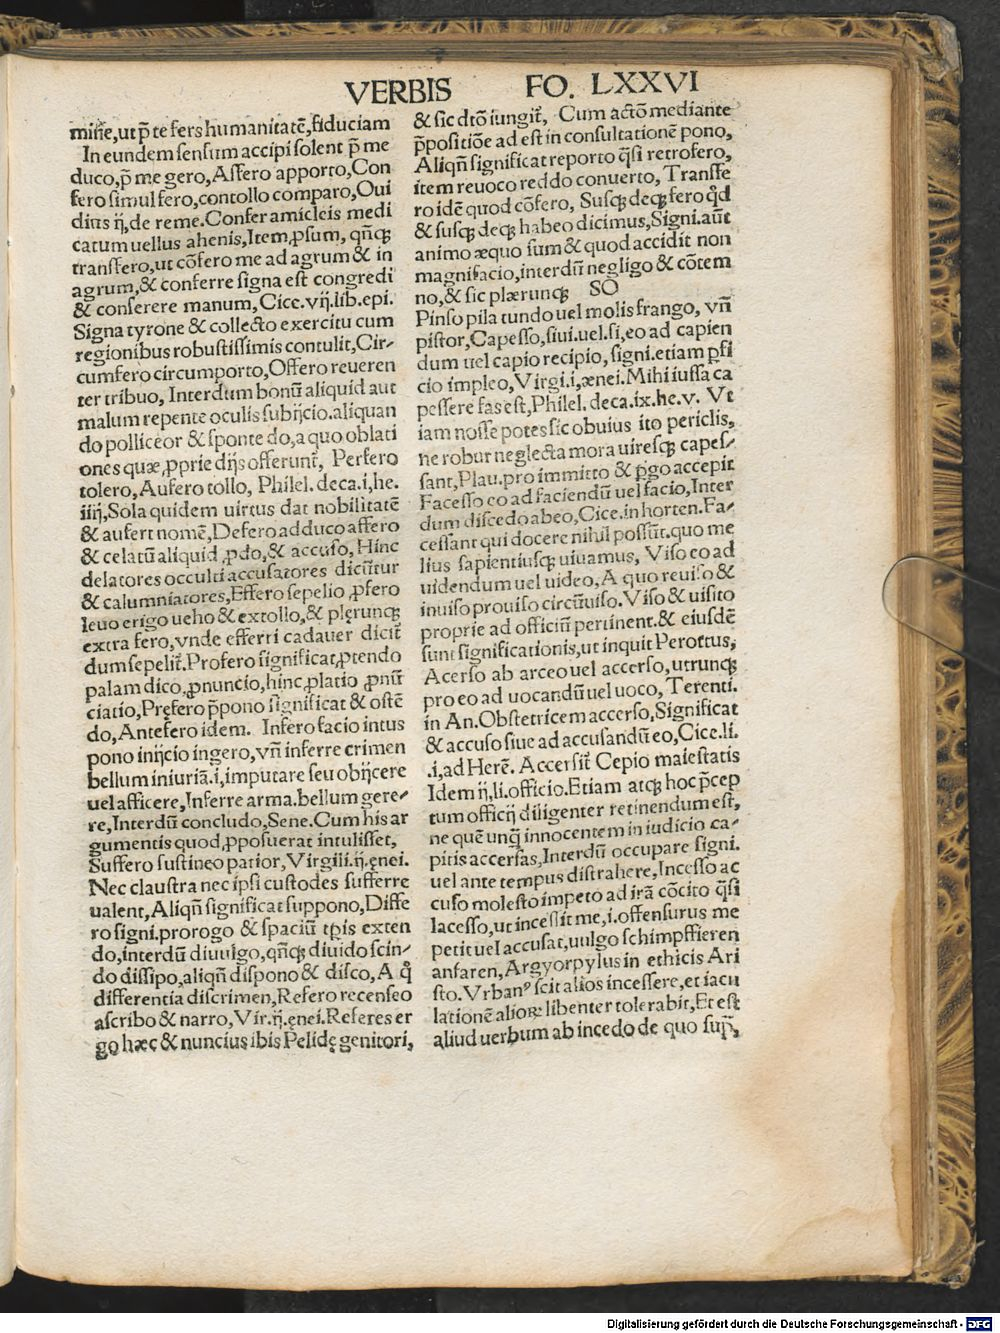 VERBIS FO. LXXVI
mine,ut p̄ te fers humanitatē,fiduciam
In eundem sensum accipi solent p̄ me
duco,p̄ me gero,Affero apporto,Con
fero simul fero,contollo comparo,Oui
dius ij,de reme.Confer amicleis medi
catum uellus ahenis,Item,ꝓsum, qñcꝫ
transfero,ut cōfero me ad agrum & in
agrum,& conferre signa est congredi
& conserere manum,Cice.vij.lib.epi.
Signa tyrone & collecto exercitu cum
regionibus robustissimis contulit,Cir-
cumfero circumporto,Offero reueren
ter tribuo, Interdum bonū aliquid aut
malum repente oculis subijcio.aliquan
do polliceor & sponte do,a quo oblati
ones quæ,ꝓprie dijs offerunt̄, Perfero
tolero,Aufero tollo, Philel.deca.i,he.
iiij,Sola quidem uirtus dat nobilitatē
& aufert nomē,Defero adduco affero
& celatū aliquid ,ꝓdo,& accuso, Hinc
delatores occulti accusatores dicūtur
& calumniatores,Effero sepelio ,ꝓfero
leuo erigo ueho & extollo,& plęrunqꝫ
extra fero,vnde efferri cadauer dicit̄
dum sepelit̄.Profero significat,ꝓtendo
palam dico,ꝓnuncio,hinc,ꝓlatio ,ꝓnū
ciatio,Pręfero p̄pono significat & ostē
do,Antefero idem. Infero facio intus
pono inijcio ingero,vñ inferre crimen
bellum iniuriā.i,imputare seu obijcere
uel afficere,Inferre arma.bellum gere-
re,Interdū concludo,Sene.Cum his ar
gumentis quod,ꝓposuerat intulisset,
Suffero sustineo patior,Virgili.ij.ęnei.
Nec claustra nec ipsi custodes sufferre
ualent,Aliqñ significat suppono,Diffe
ro signi.prorogo & spaciū tp̄is exten
do,interdū diuulgo,qñqꝫ diuido scin-
do dissipo,aliqñ dispono & disco, A q̊
differentia discrimen,Refero recenseo
ascribo & narro,Vir.ij.ęnei.Referes er
go hæc & nuncius ibis Pelidę genitori,
& sic dtō iungit̄, Cum actō mediante
p̄positiōe ad est in consultationē pono,
Aliqñ significat reporto q̄si retrofero,
item reuoco reddo conuerto, Transfe
ro idē quod cōfero, Susqꝫ deqꝫ fero q̊d
& susqꝫ deqꝫ habeo dicimus,Signi.aūt
animo æquo sum & quod accidit non
magnifacio,interdū negligo & cōtem
no,& sic plærunqꝫ SO
Pinso pila tundo uel molis frango, vñ
pistor,Capesso,siui.uel.si,eo ad capien
dum uel capio recipio, signi.etiam ꝑfi
cio impleo,Virgi.i,ænei.Mihi iussa ca
pessere fas est,Philel.deca.ix.he.v. Vt
iam nosse potes sic obuius ito periclis,
ne robur neglecta mora uiresqꝫ capes-
sant,Plau.pro immitto & ꝑgo accepit
Facesso eo ad faciendū uel facio,Inter
dum discedo abeo,Cice.in horten.Fa-
cessant qui docere nihil possūt.quo me
lius sapientiusqꝫ uiuamus, Viso eo ad
uidendum uel uideo, A quo reuiso &
inuiso prouiso circūuiso.Viso & uisito
proprie ad officiū pertinent.& eiusdē
sunt significationis,ut inquit Perottus,
Acerso ab arceo uel accerso,utrunqꝫ
pro eo ad uocandū uel uoco, Terenti.
in An.Obstetricem accerso,Significat
& accuso siue ad accusandū eo,Cice.li.
.i,ad Herē. Accersit̄ Cepio maiestatis
Idem ij,li.officio.Etiam atqꝫ hoc p̄cep
tum officij diligenter retinendum est,
ne quē unq̄ innocentem in iudicio ca-
pitis accersas,Interdū occupare signi.
uel ante tempus distrahere,Incesso ac
cuso molesto impeto ad irā cōcito q̄si
lacesso,ut incessit me,i.offensurus me
petit uel accusat,uulgo schimpffieren
anfaren,Argyorpylus in ethicis Ari
sto.Vrbanꝰ scit alios incessere,et iacu
lationē alioꝝ libenter tolerabit,Et est
aliud uerbum ab incedo de quo sup̄,
Digitalisierung gefördert durch die Deutsche Forschungsgemeinschaft - DFG